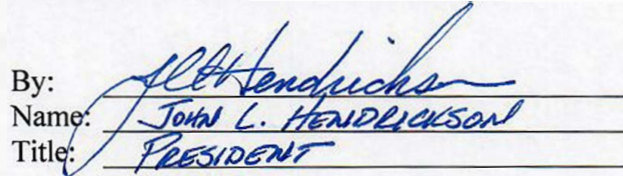 By: JLHendrickson
Name: JOHN L. HENDRICKSON
Title: PRESIDENT